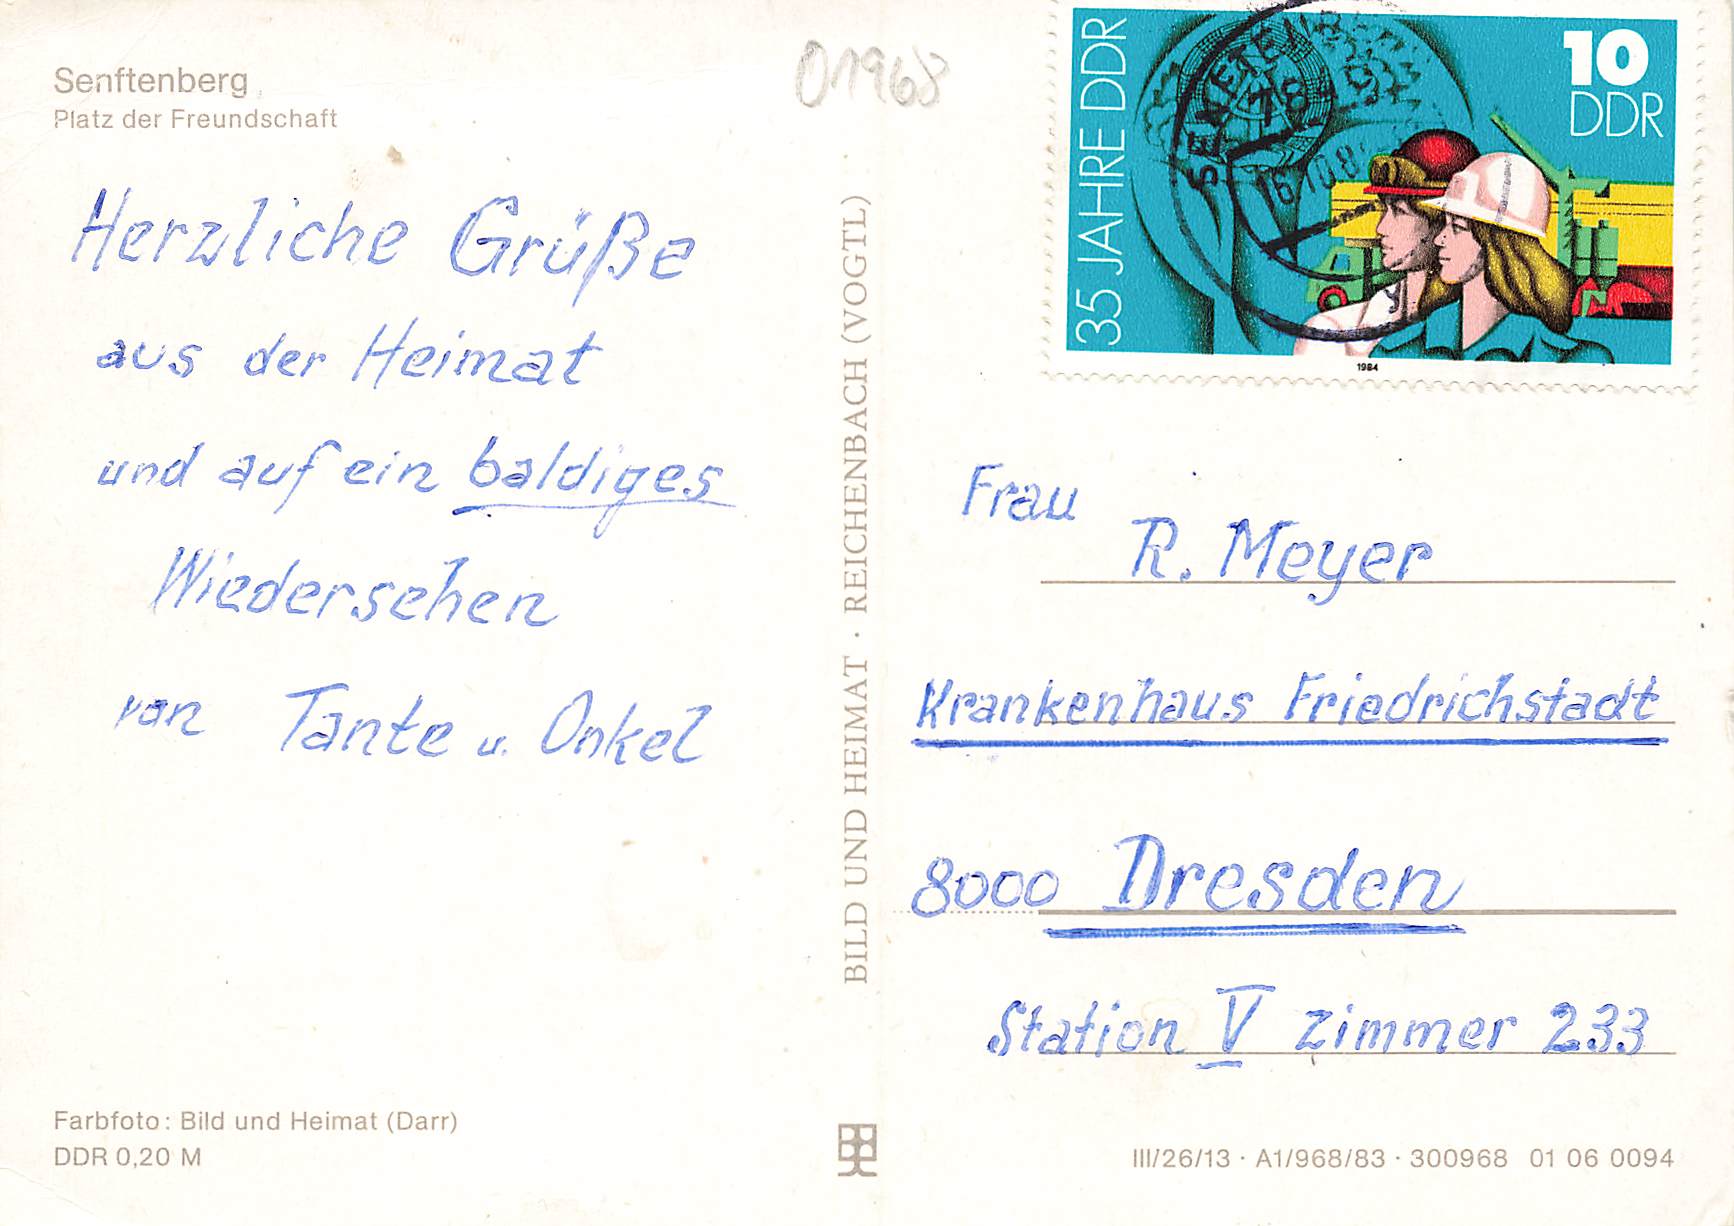 Senftenberg
Platz der Freundschaft
01968
Herzliche Grüße
aus der Heimat
und auf ein baldiges
Wiedersehen
von Tante u. Onkel
Farbfoto: Bild und Heimat (Darr)
DDR 0,20 M
BILD UND HEIMAT · REICHENBACH (VOGTL)
35 JAHRE DDR
10
DDR
1984
Frau
R. Meyer
Krankenhaus Friedrichstadt
8000 Dresden
Station V Zimmer 233
III/26/13 · A1/968/83 · 300968 01 06 0094